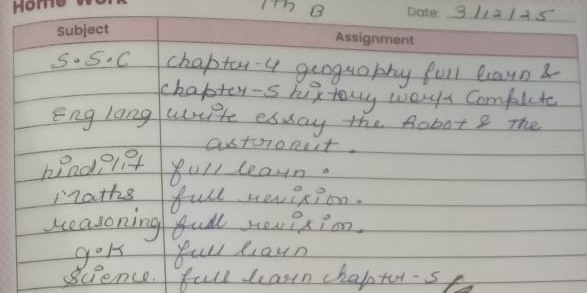 Home Work 7th B Date 3/12/25
Subject Assignment
S.S.C chapter-4 geography full learn &
chapter-5 history work Complete
Eng lang write essay the Robot & The
astronaut.
hindi lit full learn.
Maths full revision.
reasoning full revision.
g.k full learn
Science. full learn chapter-5